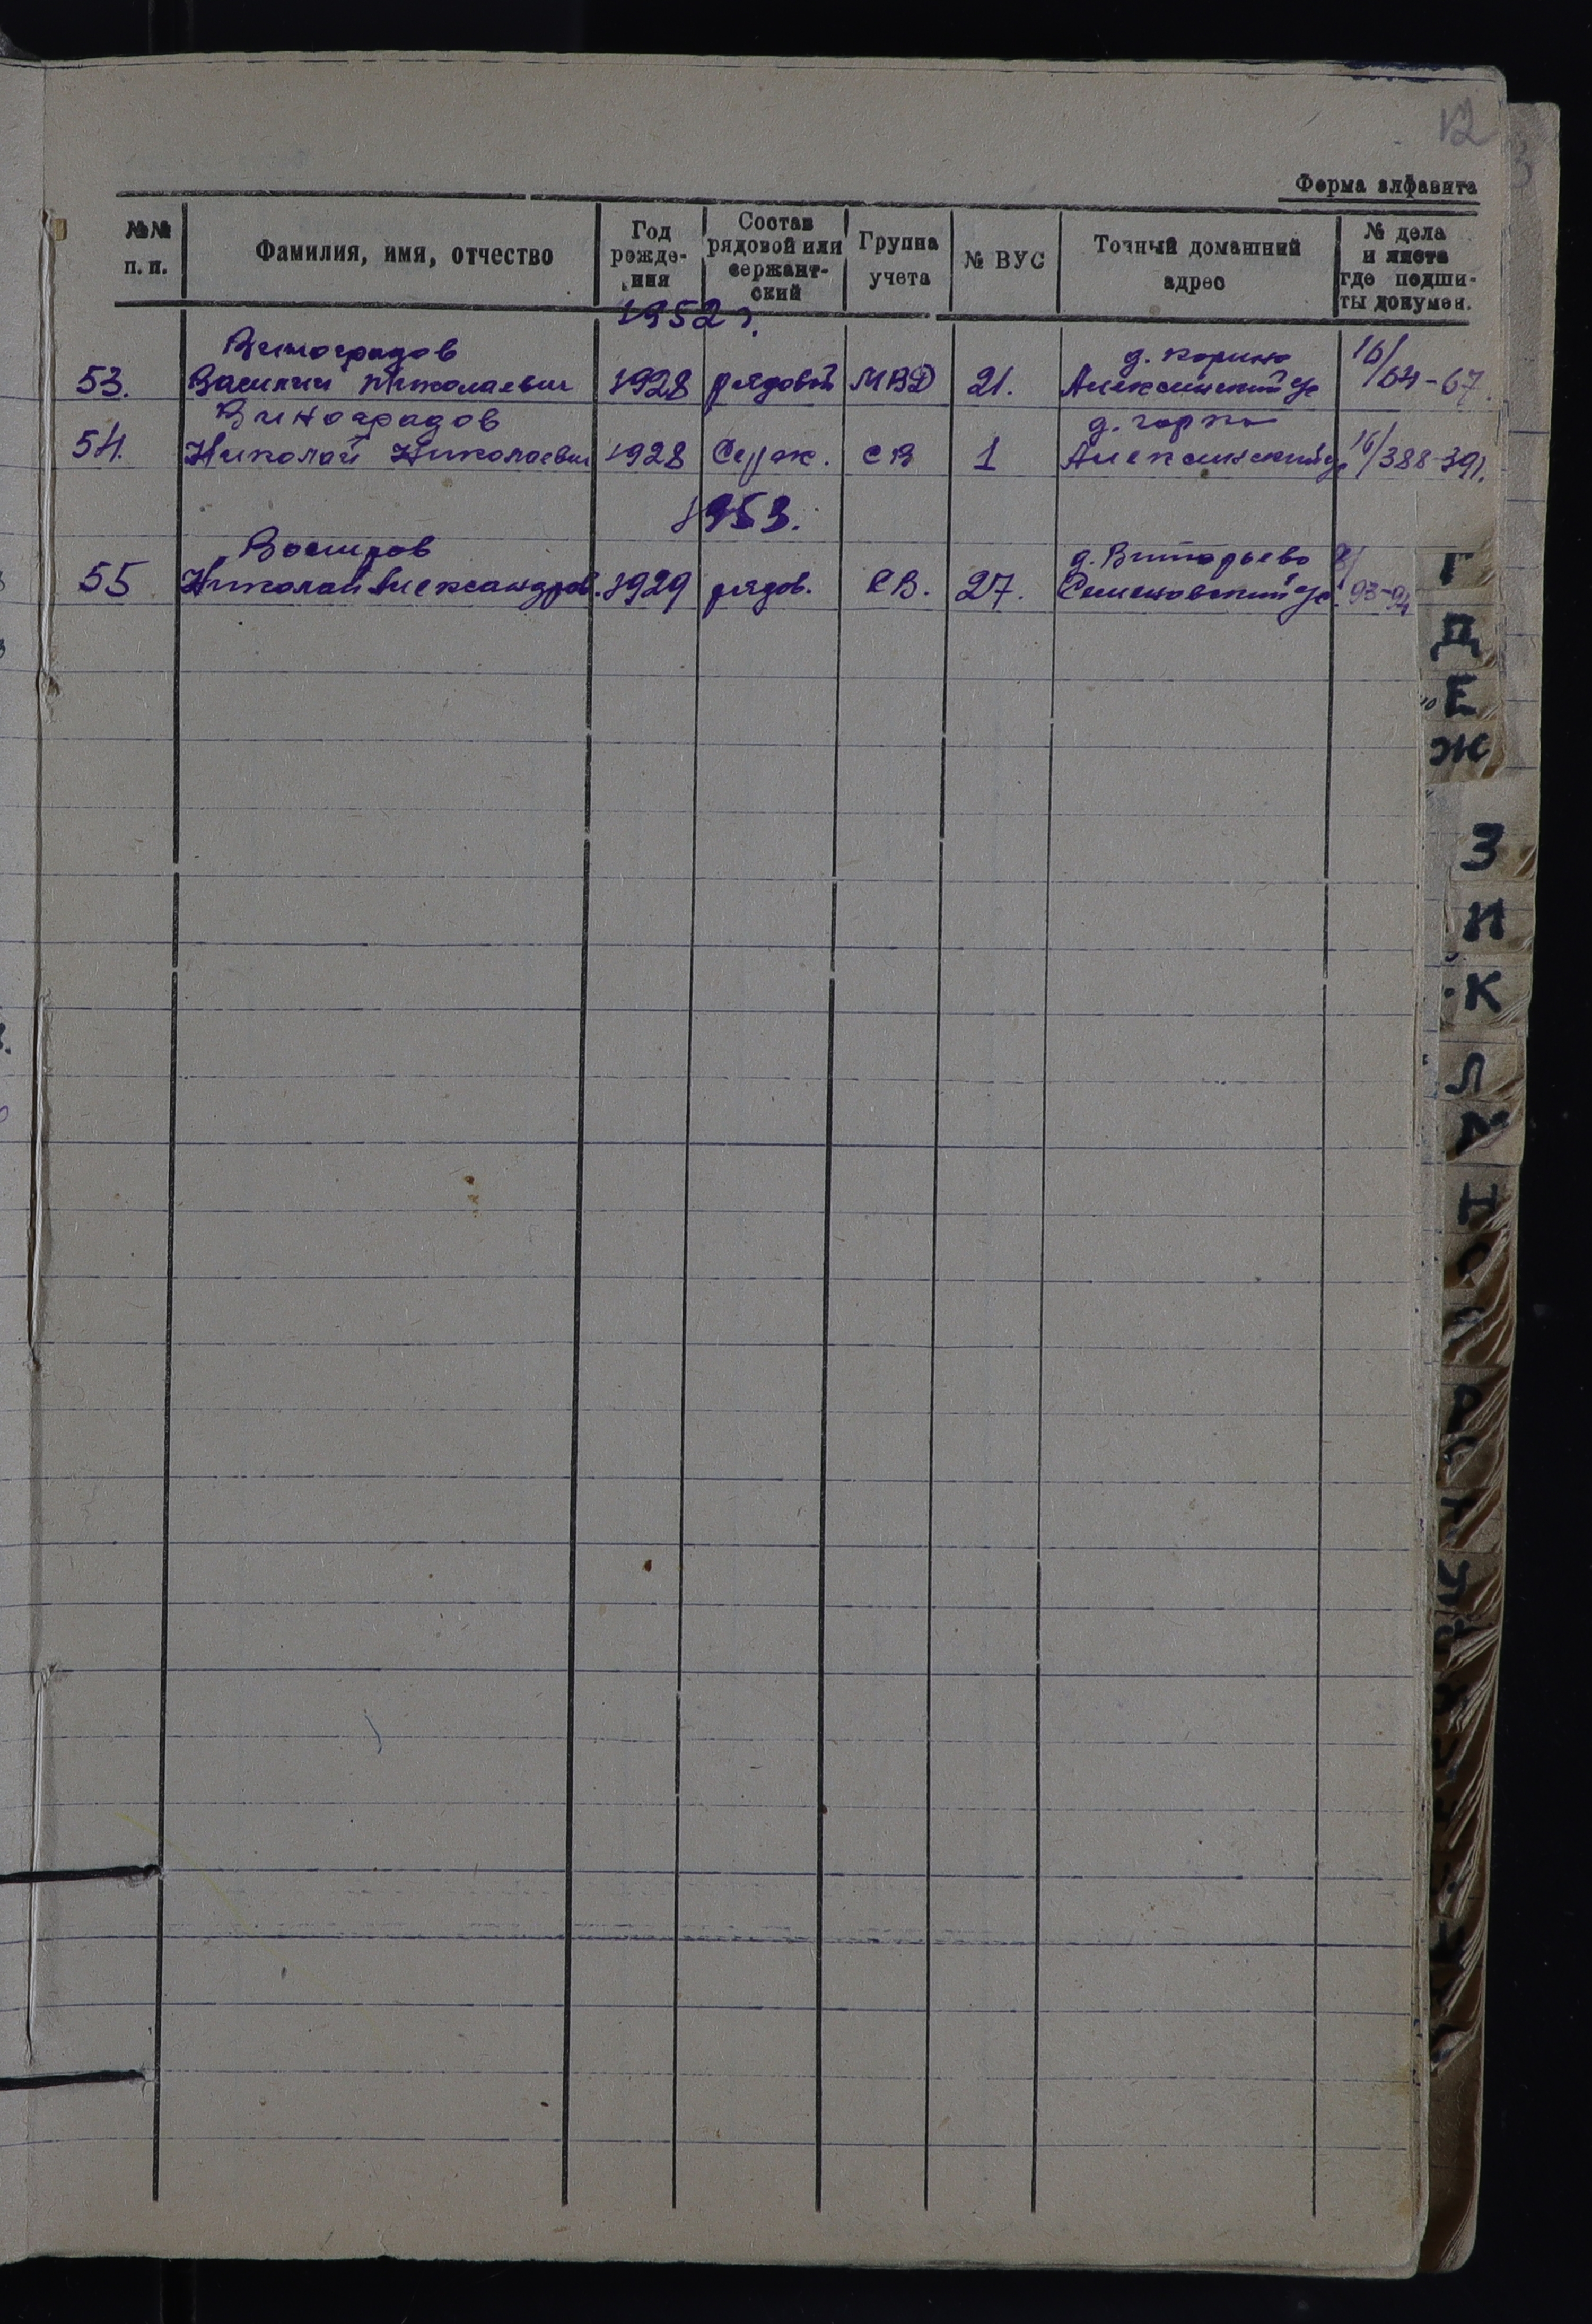 12
Форма алфавита
№№ п. п.
Фамилия, имя, отчество
Год рождения
Состав рядовой или сержантский
Группа учета
№ ВУС
Точный домашний адрес
№ дела и листа где подшиты докумен.
1952 г.
Виноградов д. Карино 16/
53. Василий Николаевич 1928 рядовой МВД 21. Алексинский 64-67.
Виноградов д. Горки
54. Николай Николаевич 1928 Серж. СВ 1 Алексинский 16/388-391.
1953.
Востров
55 Николай Александров. 1929 рядов. СВ. 27. Семеновский 93-94
Г
Д
Е
Ж
З
И
К
Л